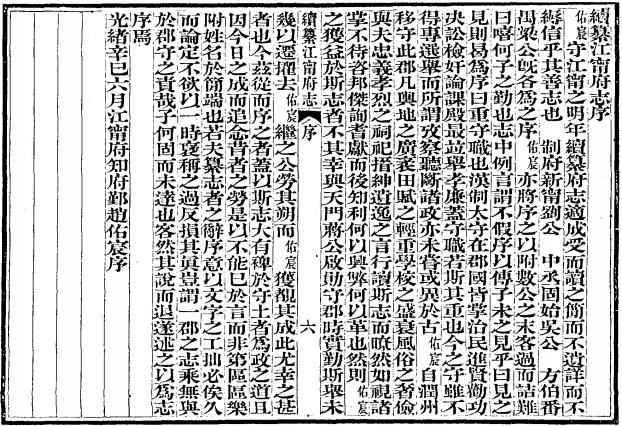 續纂江甯府志序
佑宸守江甯之明年續纂府志適成受而讀之簡而不遺詳而不
縟信乎其善志也 制府新甯劉公 中丞固始吳公 方伯番
禺梁公旣各爲之序佑宸亦將序之以附數公之末客過而詰難
曰嘻何子之勤也志中例言謂不假序以傳子未之見乎曰見之
見則曷爲序曰重守職也漢制太守在郡國皆掌治民進賢勸功
決訟檢奸論課殿最並舉孝廉蓋守職若斯其重也今之守雖不
得專選舉而所謂攷察聽斷諸政亦未嘗或異於古佑宸自潤州
移守此郡凡輿地之廣袤田賦之輕重學校之盛衰風俗之奢儉
與夫忠義孝烈之祠祀搢紳遺逸之言行讀斯志而瞭然如視諸
掌不待咨邦傑詢耆獻而後知利何以興弊何以革也然則佑宸
之獲益於斯志者不其幸與天門蔣公啟勛守郡時實勤斯舉未
續纂江甯府志 序 六
幾以遷擢去佑宸繼之公勞其朔而佑宸獲觀其成此尤幸之甚
者也今茲從而序之者蓋以斯志大有裨於守土者爲政之道且
因今日之成而追念昔者之勞是以不能已於言而非第區區樂
附姓名於簡端也若夫纂志者之辭序意以文字之工拙必俟久
而論定不欲以一時裒稱之過反損其眞豈謂一郡之志乘無與
於郡守之責哉子何固而未達也客然其說而退遂述之以爲志
序焉
光緒辛巳六月江甯府知府鄞趙佑宸序